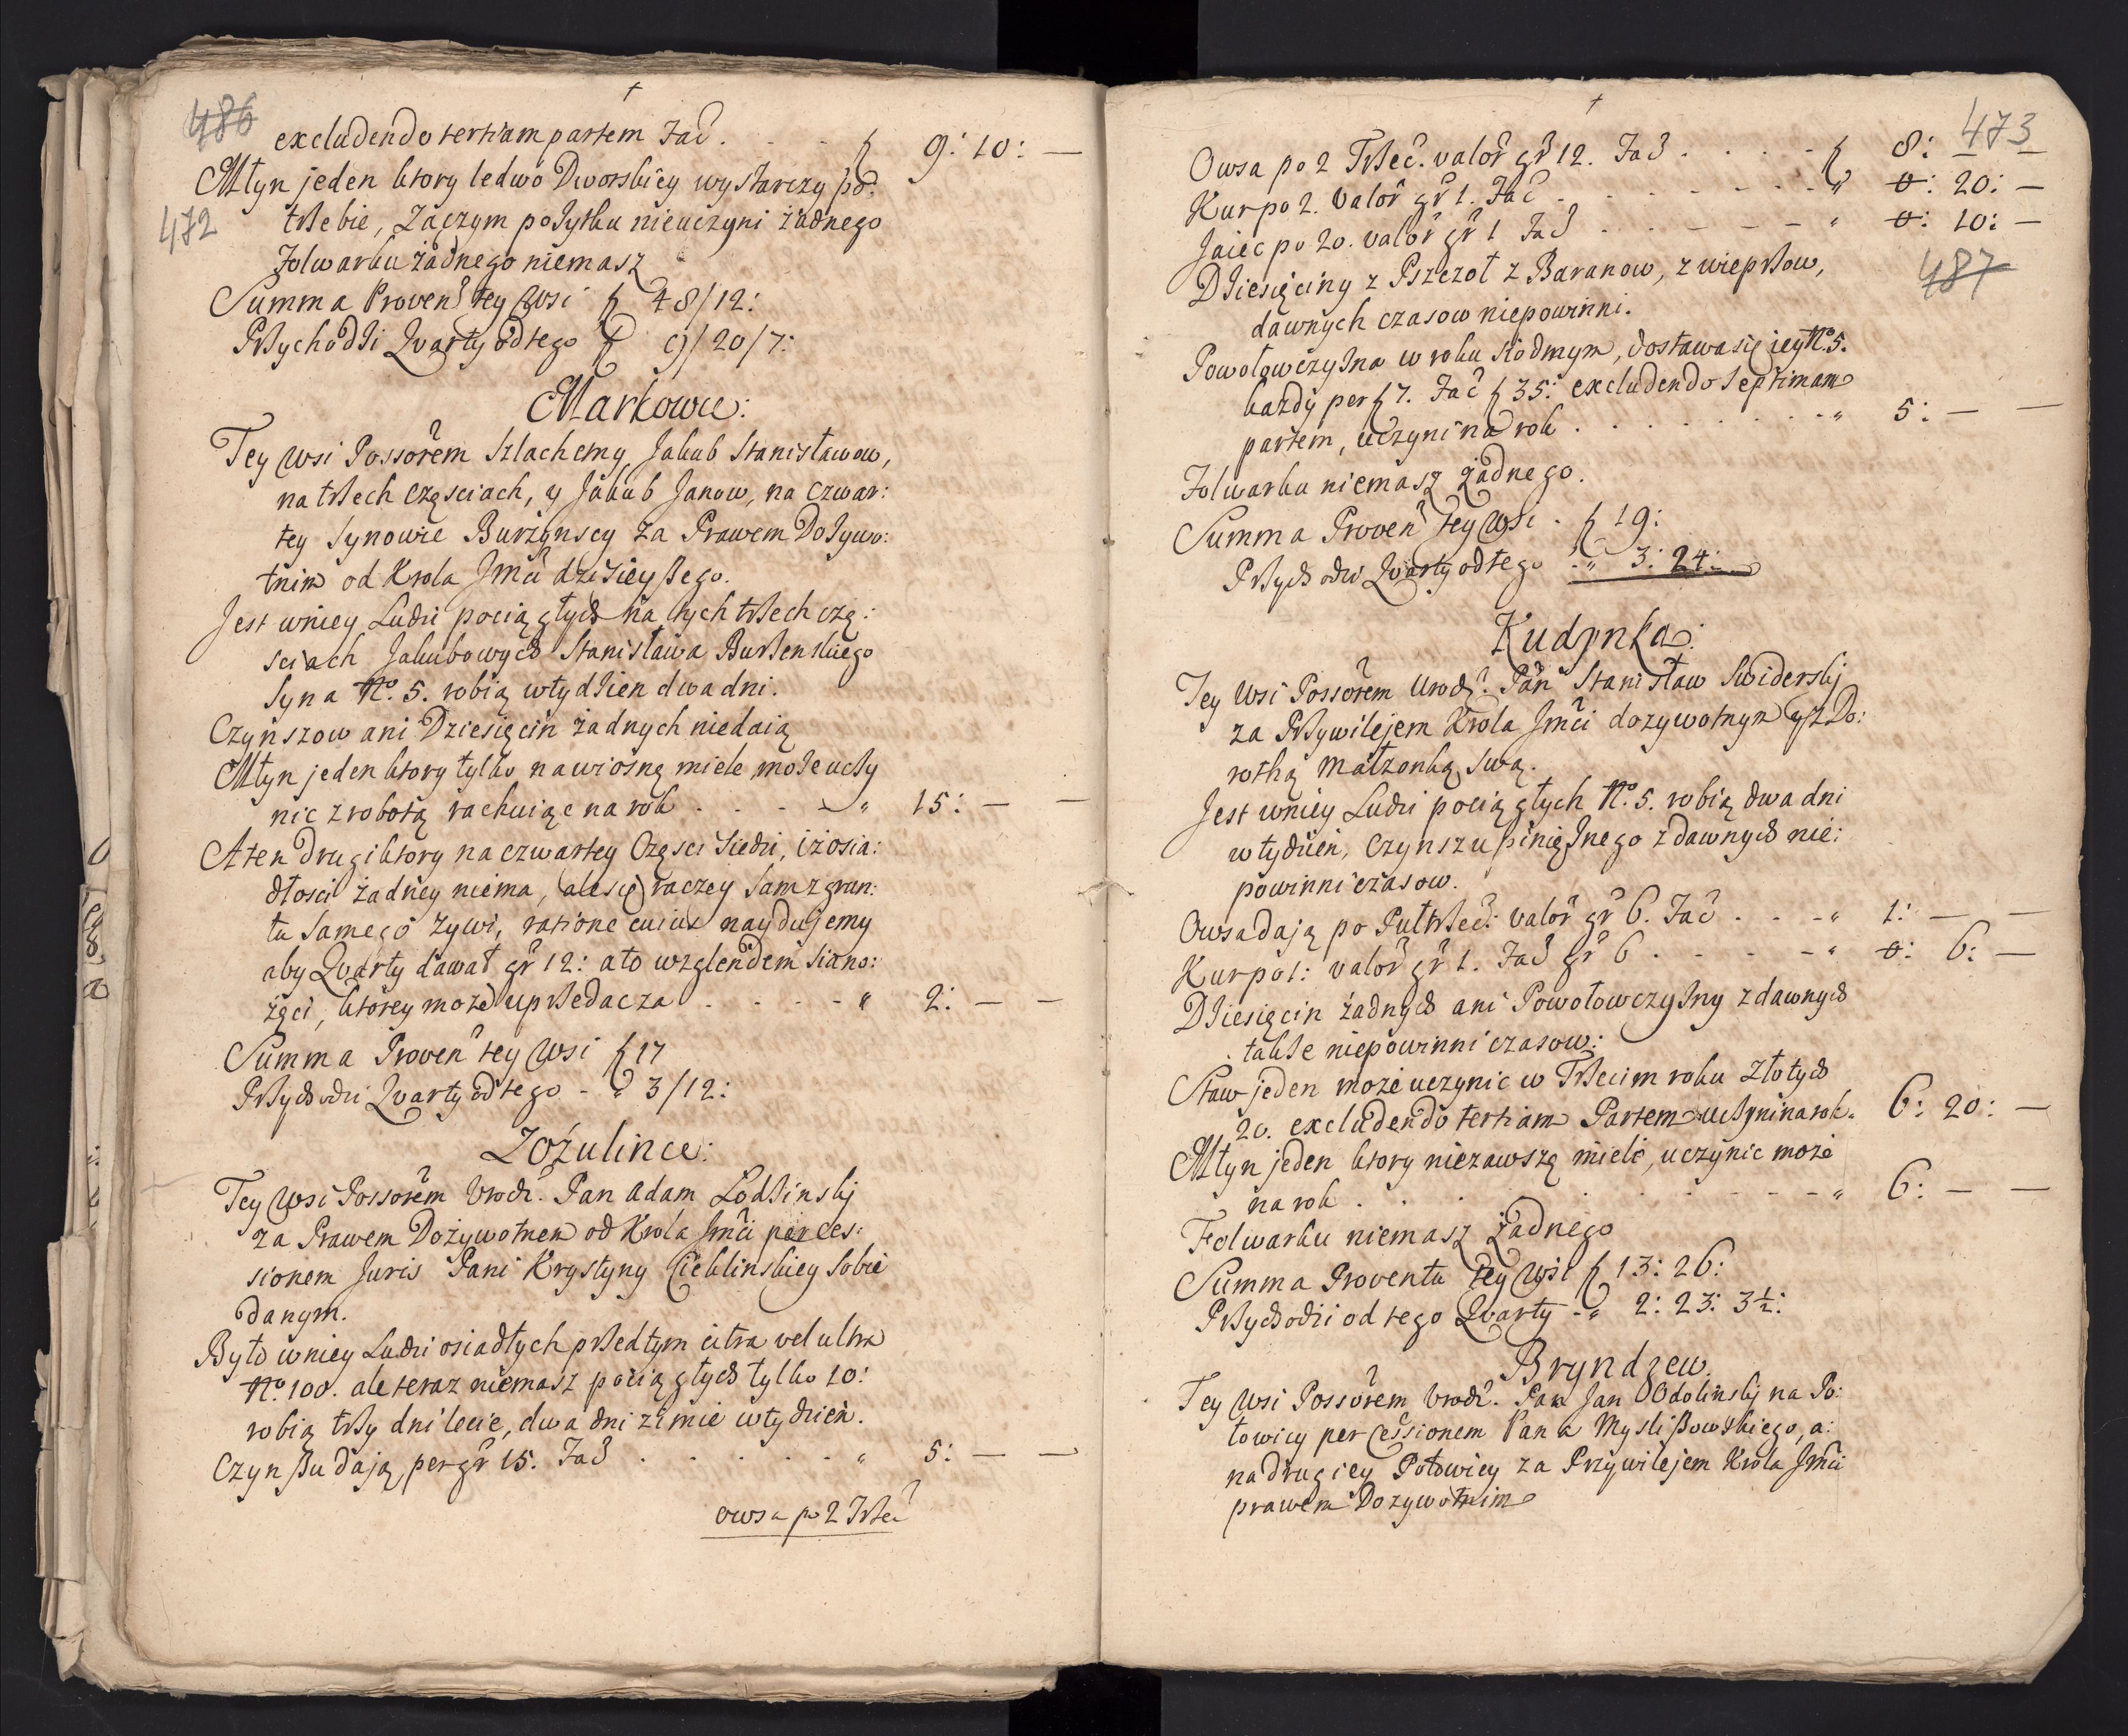 486
excludendo tertiam partem Fac̃ . . . . ƒ 9: 10: —
Młyn jeden ktory ledwo Dworskiey wystarczy po:
472
trzebie, Zaczym pożytku nieuczyni żadnego
Folwarku żadnego niemasz
Summa Proven̄ tey Wsi ƒ 48/12:
Przychodzi Qvarty od tego ƒ 9/20/7:
Markowce:
Tey Wsi Possorem Szlachetny Jakub Stanisławow,
na trzech częsciach, y Jakub Janow, na czwar:
tey Synowie Burzynscy za Prawem Dożywo:
tnim od Krola Jmci dzisieyszego.
Jest wniey Ludzi pociągłych na tych trzech czę:
sciach Jakubowych Stanisława Burzenskiego
Syna No. 5. robią wtydzien dwa dni.
Czynszow ani Dziesięcin żadnych niedaią
Młyn jeden ktory tylko na wiosnę miele może uczy
nic z robotą rachuiąc na rok . . . . " 15: — —
A ten drugi ktory na czwartey Częsci Siedzi, iż osia:
dłosci żadney niema, ale się raczey Sam z grun:
tu Samego żywi, ratione cuius nayduiemy
aby Qvarty dawał gr̃ 12: a to wzglendem siano:
żęci, ktorey może uprzedac za . . . . " 2: — —
Summa Proven̄ tey Wsi ƒ 17
Przychodzi Qvarty od tego - " 3/12:
Zożulince:
Tey Wsi Possorem Urodz. Pan Adam Lodzinskj
za Prawem Dożywotnem od Krola Jmci per ces:
sionem Juris Pani Krystyny Cieklinskiey Sobie
danym.
Było wniey Ludzi osiadłych przedtym citra vel ultra
No. 100. ale teraz niemasz pociągłych tylko 10:
robią trzy dni lecie, dwa dni zimie wtydzien.
Czynszu dają per gr̃ 15. Fac̃ . . . . . . " 5: — —
owsa po 2 Trzec̃
473
Owsa po 2 Trzec̃. valor̃ gr̃ 12. Fac̃ . . . . ƒ 8: — —
Kur po 2. valor̃ gr̃ 1. Fac̃ . . . . . . " 0: 20: —
Jaiec po 20. valor̃ gr̃ 1 Fac̃ . . . . . " 0: 10: —
487
Dziesięciny z Pszczoł z Baranow, z wieprzow,
dawnych czasow niepowinni.
Powołowczyzna w roku siodmym, dostawa się iey No. 5.
każdy per ƒ 7. Fac̃ ƒ 35: excludendo Septimam
partem, uczyni na rok . . . . . . . " 5: — —
Folwarku niemasz żadnego.
Summa Proven̄ tey Wsi . ƒ 19:
Przychodzi Qvarty od tego . " 3: 24:
Kudynka:
Tey Wsi Possorem Urodz. Pan Stanisław Swiderskj
za Przywilejem Krola Jmci dożywotnym y z Do:
rotką Małżonką Swą.
Jest wniey Ludzi pociągłych No. 5. robią dwa dni
w tydzień, Czynszu piniężnego z dawnych nie:
powinni czasow.
Owsa dają po Pułtrzec̃: valor̃ gr̃ 6. Fac̃ . . . " 1: — —
Kur po 1: valor̃ gr̃ 1. Fac̃ gr̃ 6 . . . . . " 0: 6: —
Dziesięcin żadnych ani Powołowczyzny z dawnych
także niepowinni czasow:
Staw jeden może uczynic w Trzecim roku Złotych
20. excludendo tertiam Partem uczyni na rok. 6: 20: —
Młyn jeden ktory niezawszę miele, uczynic może
na rok . . . . . . . . . . " 6: — —
Folwarku niemasz żadnego
Summa Proventu tey Wsi ƒ 13: 26:
Przychodzi od tego Qvarty - " 2: 23: 3½:
Bryndzew.
Tey Wsi Possorem Urodz. Pan Jan Obdolinskj na Po:
łowicy per Cessionem Pana Myśliszowskiego, a:
na drugiey Połowicy za Przywilejem Krola Jmci
prawem Dozywotnim